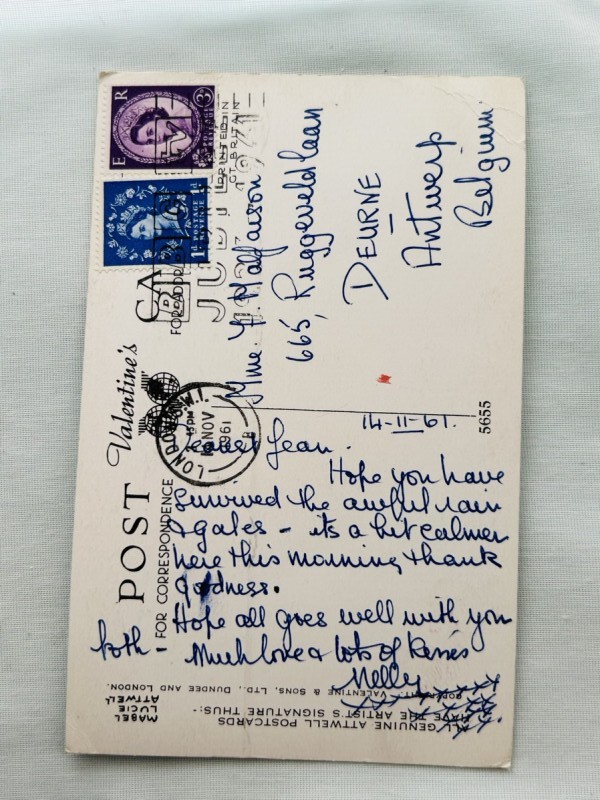 POST CA
Valentine's
FOR CORRESPONDENCE
FOR ADDR
PRINTED IN
GT BRITAIN
E R
3D
POSTAGE
REVENUE
LONDON S.W.1.
NOV
1961
5655
Mme
665, Ruggeveldlaan
DEURNE
Antwerp
Belgium
14-II-61.
Jean.
Hope you have
survived the awful rain
& gales - its a bit calmer
here this morning thank
goodness.
Hope all goes well with you
both -
Much love & lots of kisses
Nelly
ALL GENUINE ATTWELL POSTCARDS
HAVE THE ARTIST'S SIGNATURE THUS:-
MABEL
LUCIE
ATTWELL
COPYRIGHT. VALENTINE & SONS, LTD., DUNDEE AND LONDON.